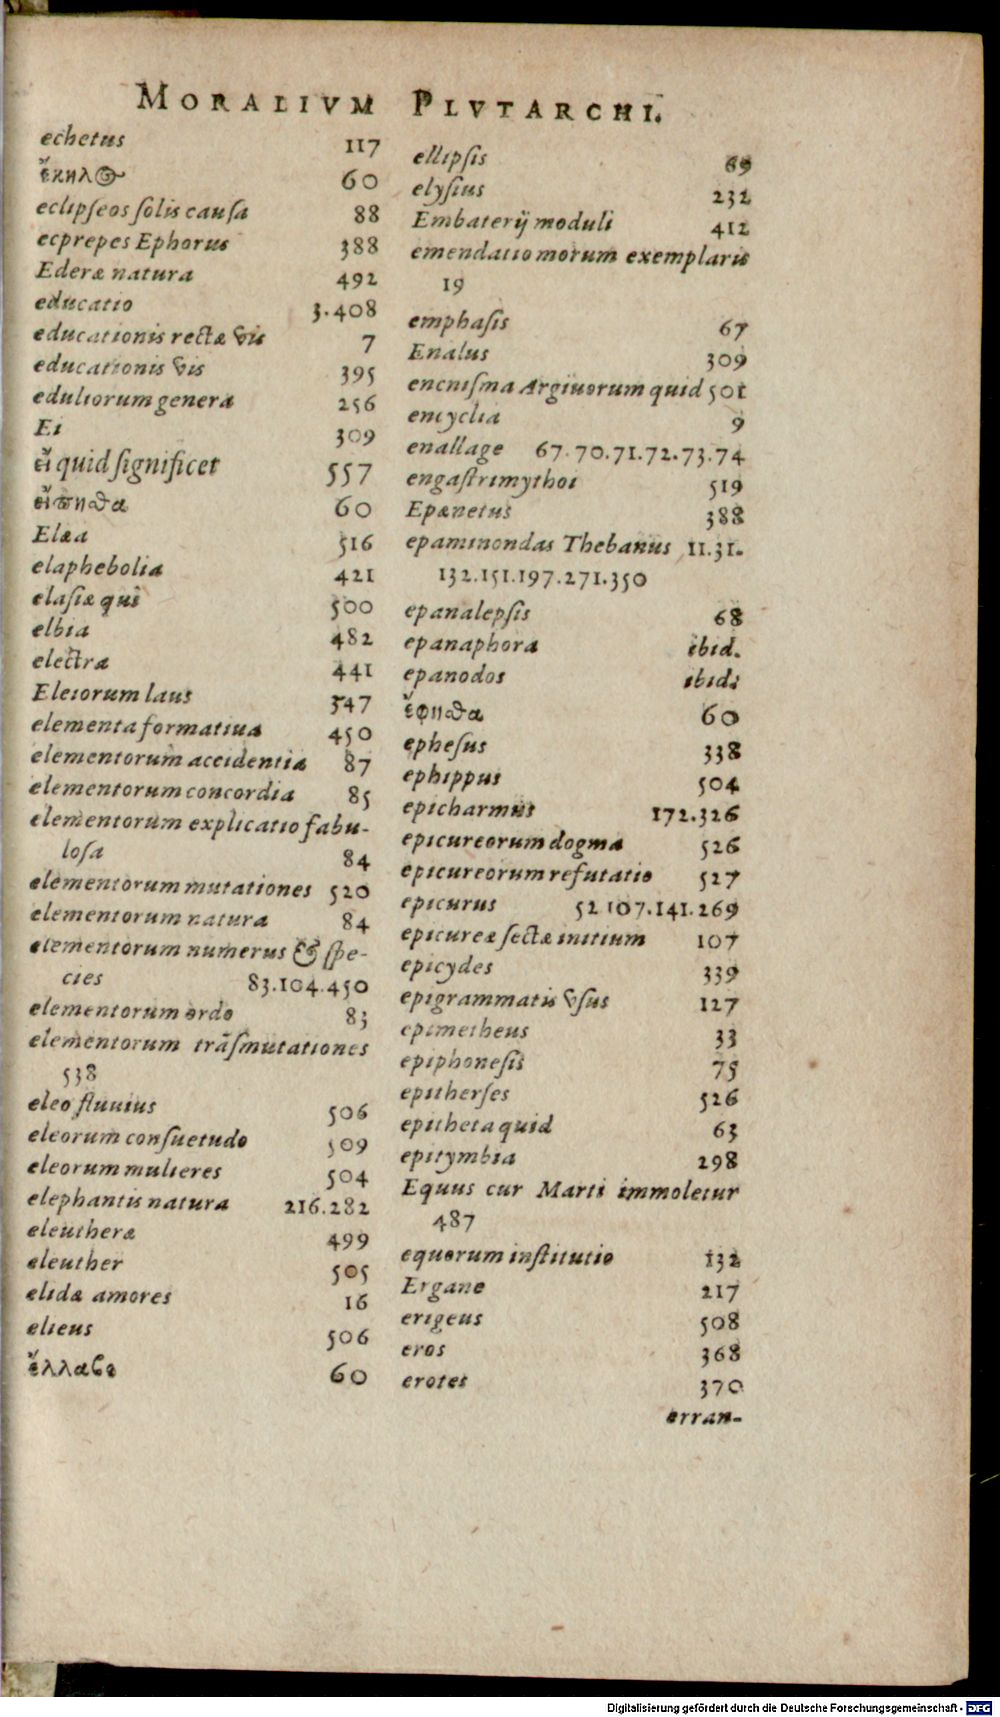 MORALIVM PLVTARCHI.
echetus 117
ἕκηλος 60
eclipseos solis causa 88
ecprepes Ephorus 388
Ederæ natura 492
educatio 3.408
educationis rectæ vis 7
educationis vis 395
eduliorum genera 256
Ei 309
εἴ quid significet 557
εἴπηθα 60
Elæa 516
elaphebolia 421
elasiæ qui 500
elbia 482
electra 441
Eleiorum laus 347
elementa formatiua 450
elementorum accidentia 87
elementorum concordia 85
elementorum explicatio fabu-
losa 84
elementorum mutationes 520
elementorum natura 84
elementorum numerus & spe-
cies 83.104.450
elementorum ordo 83
elementorum trãsmutationes
538
eleo fluuius 506
eleorum consuetudo 509
eleorum mulieres 504
elephantis natura 216.282
eleutheræ 499
eleuther 505
elidæ amores 16
elieus 506
ἔλλαβε 60
ellipsis 69
elysius 232
Embaterij moduli 412
emendatio morum exemplaris
19
emphasis 67
Enalus 309
encnisma Argiuorum quid 501
encyclia 9
enallage 67.70.71.72.73.74
engastrimythoi 519
Epænetus 388
epaminondas Thebanus 11.31.
132.151.197.271.350
epanalepsis 68
epanaphora ibid.
epanodos ibid.
ἔφηθα 60
ephesus 338
ephippus 504
epicharmus 172.326
epicureorum dogma 526
epicureorum refutatio 527
epicurus 52.107.141.269
epicureæ sectæ initium 107
epicydes 339
epigrammatis vsus 127
epimetheus 33
epiphonesis 75
epitherses 526
epitheta quid 63
epitymbia 298
Equus cur Marti immoletur
487
equorum institutio 132
Ergane 217
erigeus 508
eros 368
erotes 370
erran-
Digitalisierung gefördert durch die Deutsche Forschungsgemeinschaft - DFG